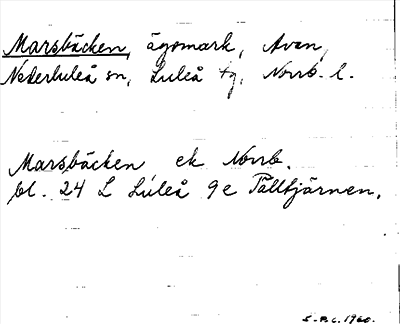 Marsbäcken, ägomark, Avan,
Nederluleå sn, Luleå tg, Norrb. l.
Marsbäcken ek Norrb.
bl. 24 L Luleå 9e Talltjärnen.
S.B.C. 1960.